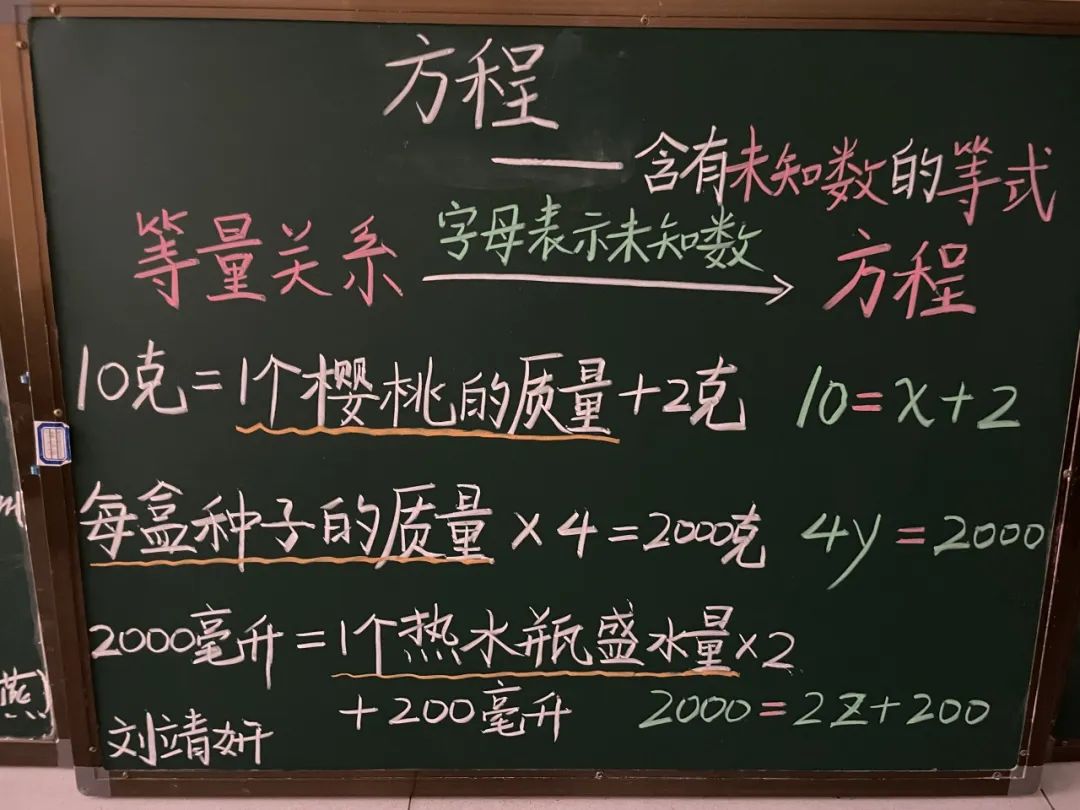 方程
——含有未知数的等式
字母表示未知数
等量关系 方程
10克=1个樱桃的质量+2克 10=x+2
每盒种子的质量×4=2000克 4y=2000
2000毫升=1个热水瓶盛水量×2
+200毫升 2000=2z+200
刘靖妍
燕)
m